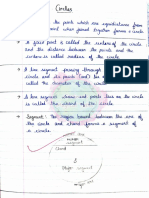 Circles
The points which are equidistant from
and when joined together forms a circle
A fixed point is called the centre of the circle
and the distance between the points and the
centre is called radius of the circle.
A line segment passing through
circle and its points (end) lie on
called the diameter of the circle.
A line segment whose end points lie on circle
is called the chord of the circle.
Segment: The region bounded between the arc of
the circle and chord forms a segment of
a circle.
minor
segment
Chord
Major segment
Major arc